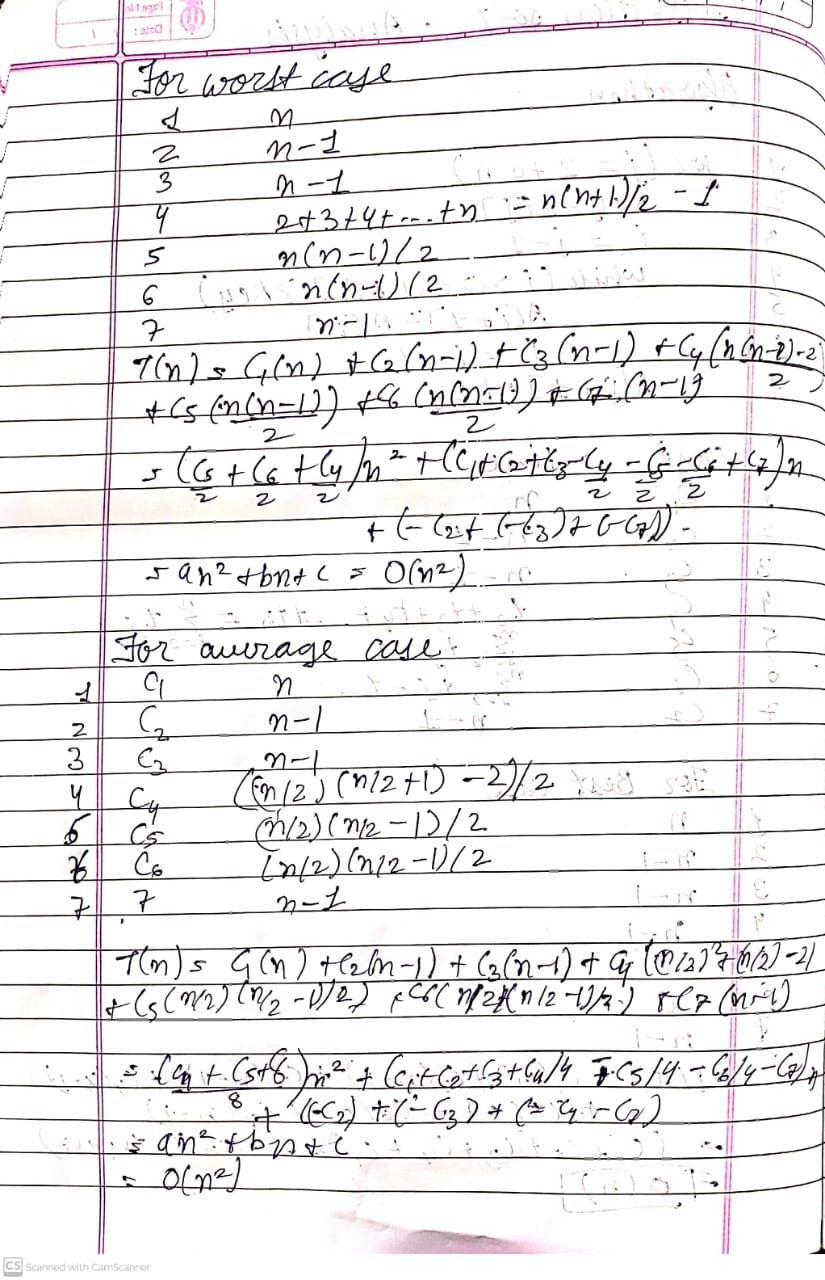 For worst case
1 n
2 n-1
3 n-1
4 2+3+4+...+n = n(n+1)/2 - 1
5 n(n-1)/2
6 n(n-1)/2
7 n-1
T(n) = C1(n) + C2(n-1) + C3(n-1) + C4(n(n-1)-2)/2
+ C5(n(n-1))/2 + C6(n(n-1))/2 + C7(n-1)
= (C5/2 + C6/2 + C4/2)n² + (C1+C2+C3-C4/2 - C5/2 - C6/2 + C7)n
+ (-C2+(-C3)+(-C7))
= an²+bn+c = O(n²)
For average case
1 C1 n
2 C2 n-1
3 C3 n-1
4 C4 ((n/2)(n/2+1)-2)/2
5 C5 (n/2)(n/2-1)/2
6 C6 (n/2)(n/2-1)/2
7 7 n-1
T(n) = C1(n) + C2(n-1) + C3(n-1) + C4((n/2)²+(n/2)-2)
+ C5(n/2)(n/2-1)/2) + C6(n/2)(n/2-1)/2) + C7(n-1)
= (C4+C5+6/8)n² + (C1+C2+C3+C4/4 - C5/4 - C6/4 - C7)n
+ (-C2) + (-C3) + (-C4-C7)
= an²+bn+c
= O(n²)
CS Scanned with CamScanner